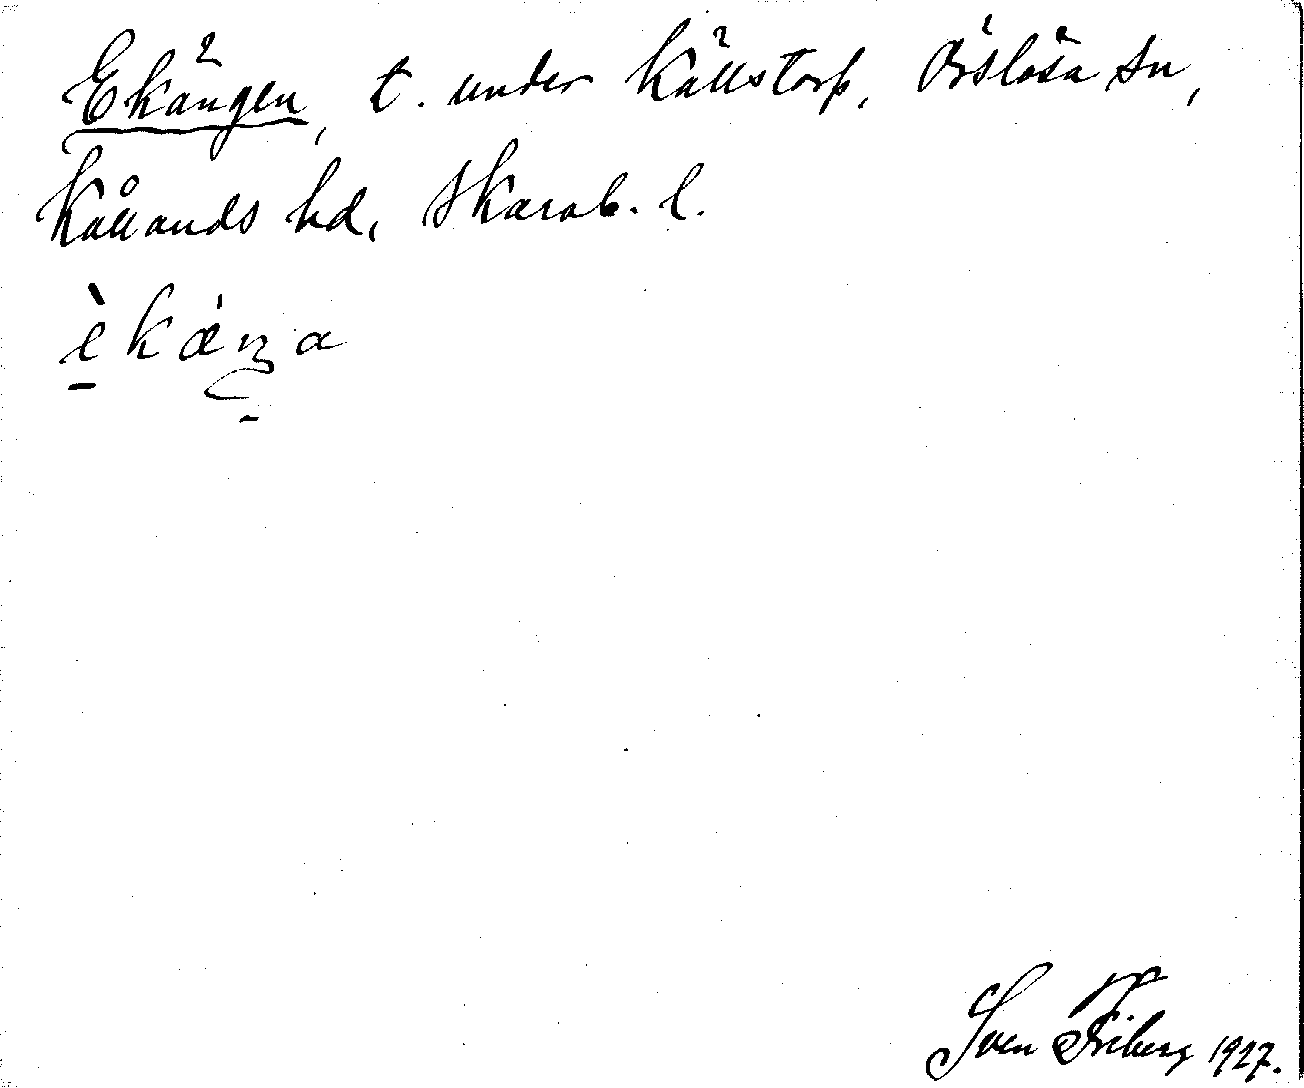 Ekängen, t. under Källstorp, Örslösa sn,
Kållands hd, Skarab. l.
èkæ̀ŋa
Sven Friberg 1927.